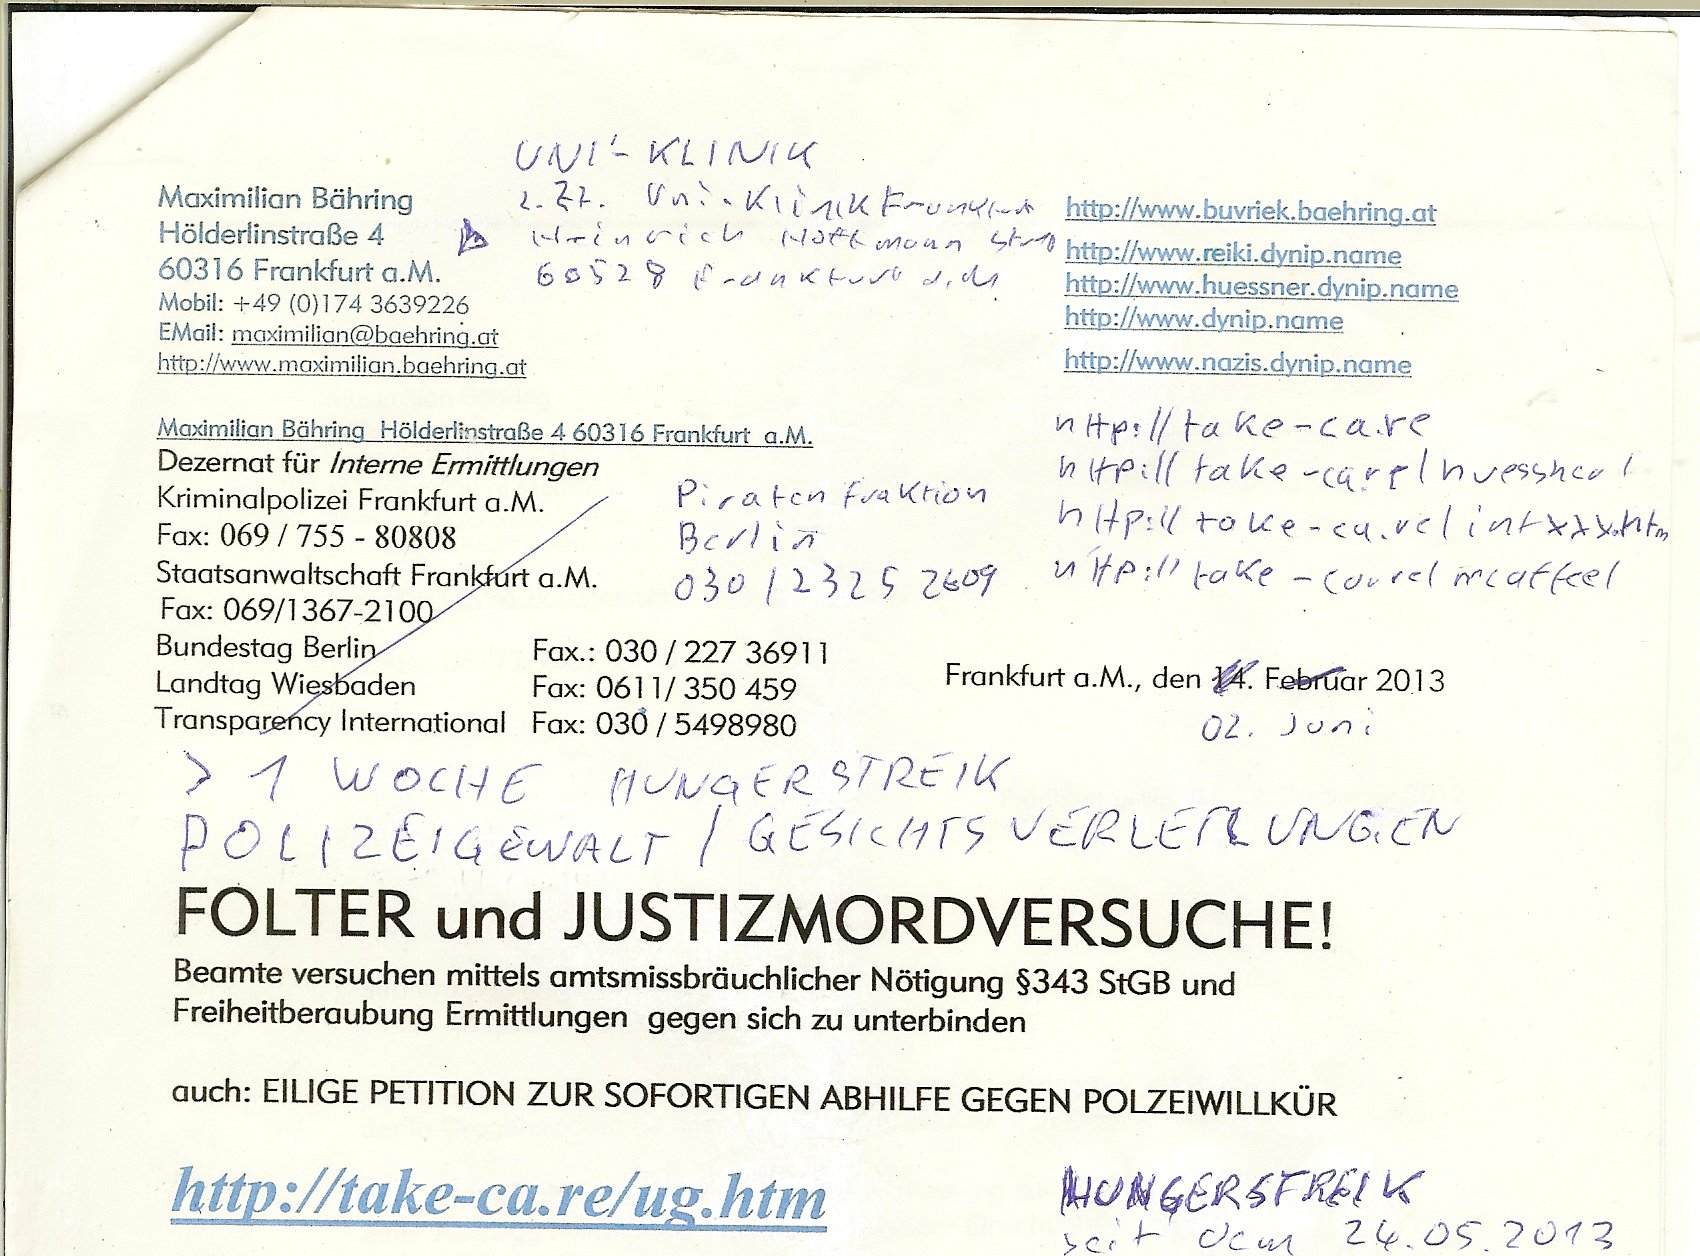 UNI-KLINIK
z.Zt. Uni-Klinik Frankfurt
Heinrich Hoffmann Str
60528 Frankfurt a.M
Maximilian Bähring
Hölderlinstraße 4
60316 Frankfurt a.M.
Mobil: +49 (0)174 3639226
EMail: maximilian@baehring.at
http://www.maximilian.baehring.at
http://www.buvriek.baehring.at
http://www.reiki.dynip.name
http://www.huessner.dynip.name
http://www.dynip.name
http://www.nazis.dynip.name
http://take-ca.re
http://take-ca.re/huessner/
http://take-ca.re/intxxx.htm
http://take-ca.re/mcaffee/
Maximilian Bähring Hölderlinstraße 4 60316 Frankfurt a.M.
Dezernat für Interne Ermittlungen
Kriminalpolizei Frankfurt a.M.
Fax: 069 / 755 - 80808
Staatsanwaltschaft Frankfurt a.M.
Fax: 069/1367-2100
Bundestag Berlin Fax.: 030 / 227 36911
Landtag Wiesbaden Fax: 0611/ 350 459
Transparency International Fax: 030 / 5498980
Piraten fraktion
Berlin
030 / 2325 2609
Frankfurt a.M., den 14. Februar 2013
02. Juni
> 1 WOCHE HUNGERSTREIK
POLIZEIGEWALT / GESICHTSVERLETZUNGEN
FOLTER und JUSTIZMORDVERSUCHE!
Beamte versuchen mittels amtsmissbräuchlicher Nötigung §343 StGB und
Freiheitberaubung Ermittlungen gegen sich zu unterbinden
auch: EILIGE PETITION ZUR SOFORTIGEN ABHILFE GEGEN POLZEIWILLKÜR
http://take-ca.re/ug.htm
HUNGERSTREIK
seit dem 24.05.2013